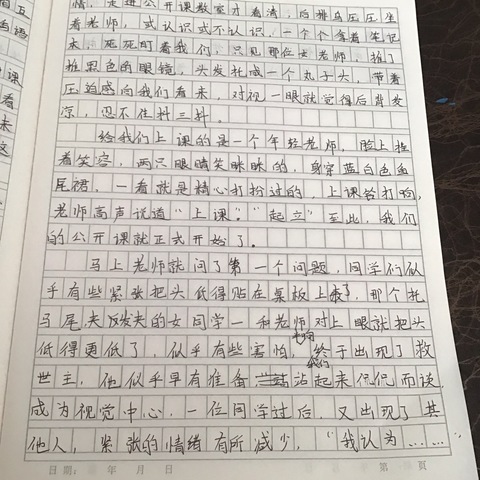 情，走进公开课教室才看清，后排乌压压坐
着老师，或认识或不认识，一个个拿着笔记
本，死死盯着我们，只见那位女老师，推了
推黑色的眼镜，头发扎成一个丸子头，带着
压迫感向我们看来，对视一眼就觉得后背发
凉，忍不住抖三抖。
给我们上课的是一个年轻老师，脸上挂
着笑容，两只眼睛笑眯眯的，身穿蓝白色鱼
尾裙，一看就是精心打扮过的，上课铃打响，
老师高声说道“上课。”“起立”至此，我们
的公开课就正式开始了。
马上老师就问了第一个问题，同学们似
乎有些紧张把头低得贴在桌板上了，那个扎
马尾夹发夹的女同学一和老师对上眼就把头
低得更低了，似乎有些害怕，终于出现了救
世主，他似乎早有准备站起来侃侃而谈，
成为视觉中心，一位同学过后，又出现了其
他人，紧张的情绪有所减少，“我认为……”
日期： 年 月 日 第 页